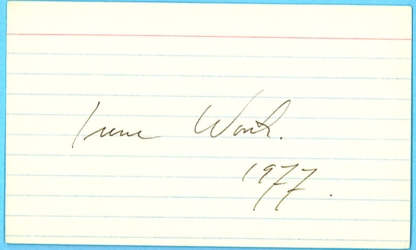 Irene Worth.
1977.